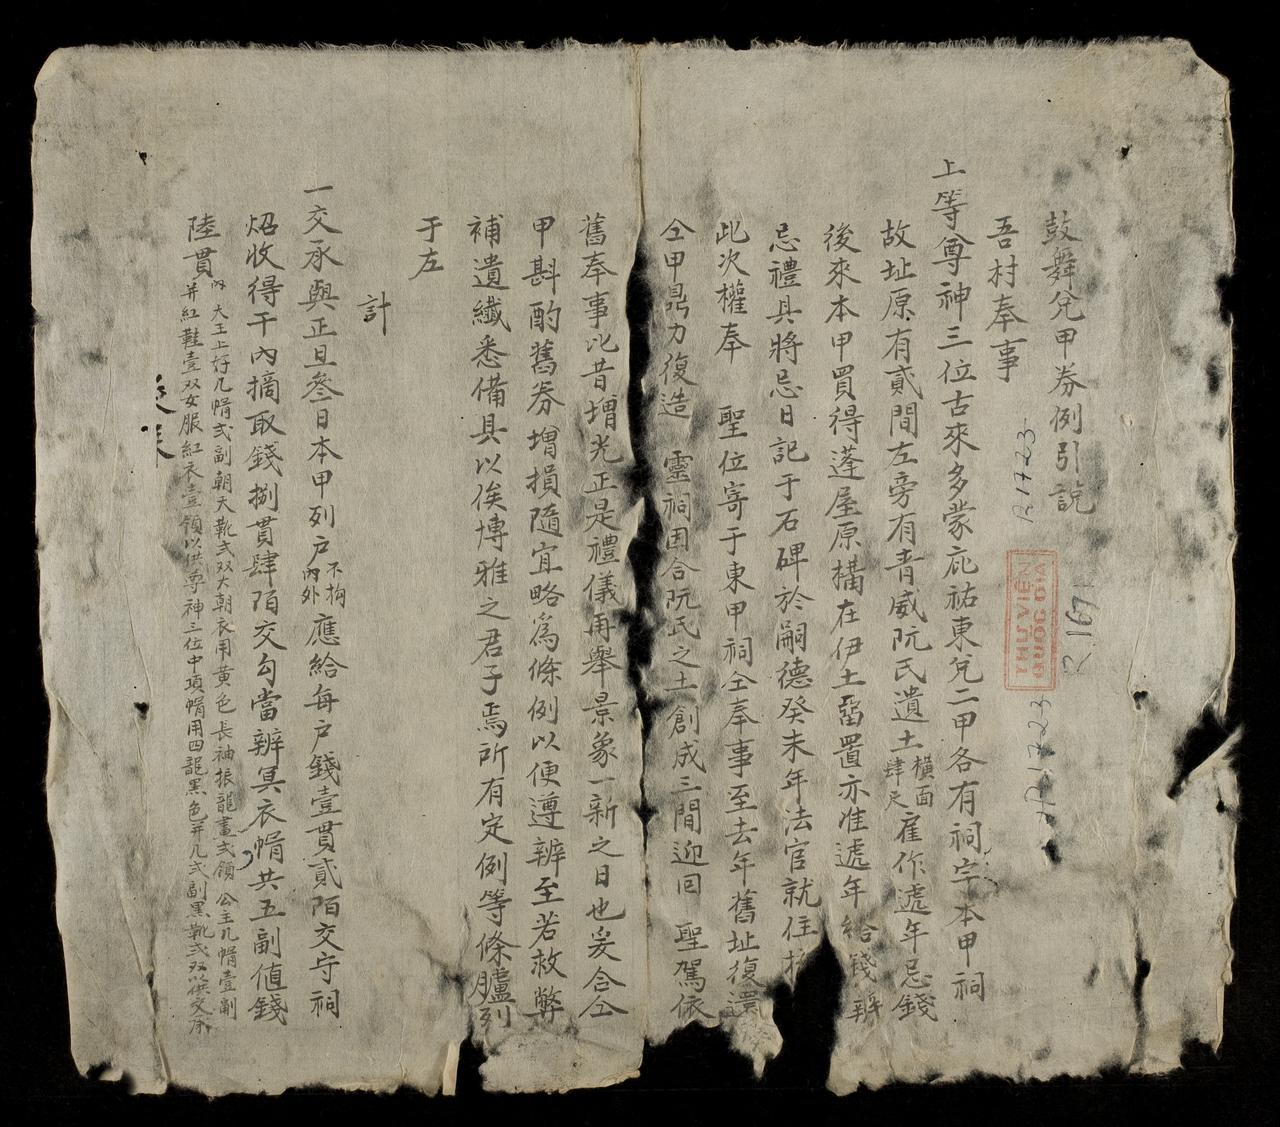 鼓舞兌甲券例引說
吾村奉事
上等尊神三位古來多蒙庇祐東兌二甲各有祠宇本甲祠
故址原有貳間左旁有青威阮氏遺土橫面肆尺雇作遞年忌錢
後來本甲買得蓬屋原構在伊土畱置亦准遞年給錢辦
忌禮具將忌日記于石碑於嗣德癸未年法官就住
此次權奉 聖位寄于東甲祠仝奉事至去年舊址復還
仝甲鼎力復造 靈祠因合阮氏之土創成三間迎囘 聖駕依
舊奉事比昔增光正是禮儀再舉景象一新之日也爰合仝
甲斟酌舊券增損隨宜略爲條例以便遵辨至若救弊
補遺纖悉備具以俟博雅之君子焉所有定例等條臚列
于左
計
一交承與正旦叄日本甲列户不拘內外應給每户錢壹貫貳陌交守祠
炤收得干內摘取錢捌貫肆陌交勾當辦冥衣帽共五副值錢
陸貫內 大王上好几帽弍副朝天靴弍双大朝衣用黄色長袖振龍畫弍領 公主几帽壹副
并紅鞋壹双女服紅衣壹領以供尊神三位中項帽用四龍黑色并几弍副黑靴弍双以供交承
R.1723
THƯ VIỆN
QUỐC GIA
R.1691
R.1723